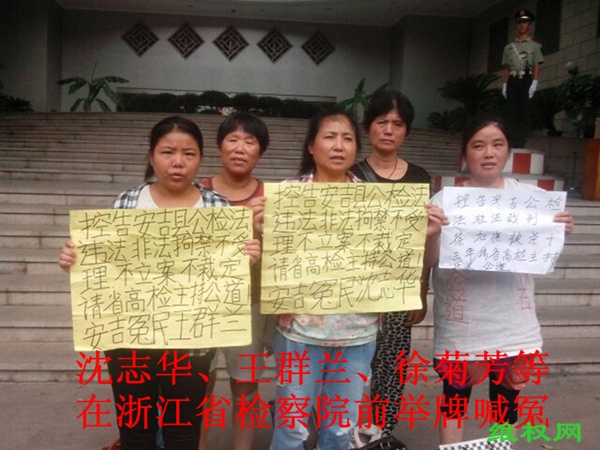 控告安吉县公检法
违法非法拘禁不受
理不立案不裁定
请省高检主持公道!
安吉冤民王群兰
控告安吉县公检法
违法非法拘禁不受
理不立案不裁定
请省高检主持公道!
安吉冤民沈志华
控告安吉公检
法枉法裁判
三年请省高检主持
沈志华、王群兰、徐菊芳等
在浙江省检察院前举牌喊冤
维权网